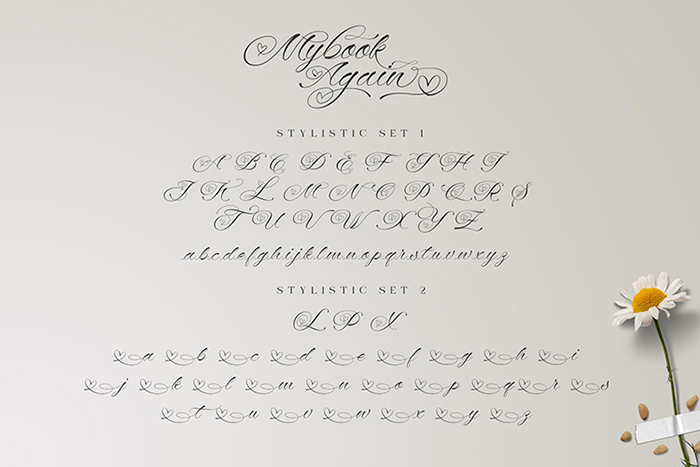 Mybook
Again
STYLISTIC SET 1
A B C D E F G H I
J K L M N O P Q R S
T U V W X Y Z
abcdefghijklmnopqrstuvwxyz
STYLISTIC SET 2
L P X
a b c d e f g h i
j k l m n o p q r s
t u v w x y z